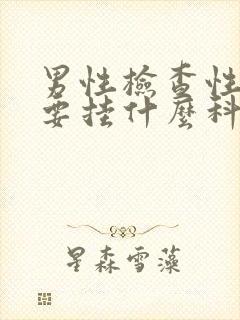 男性檢查性
要挂什麼科
星森雪藻